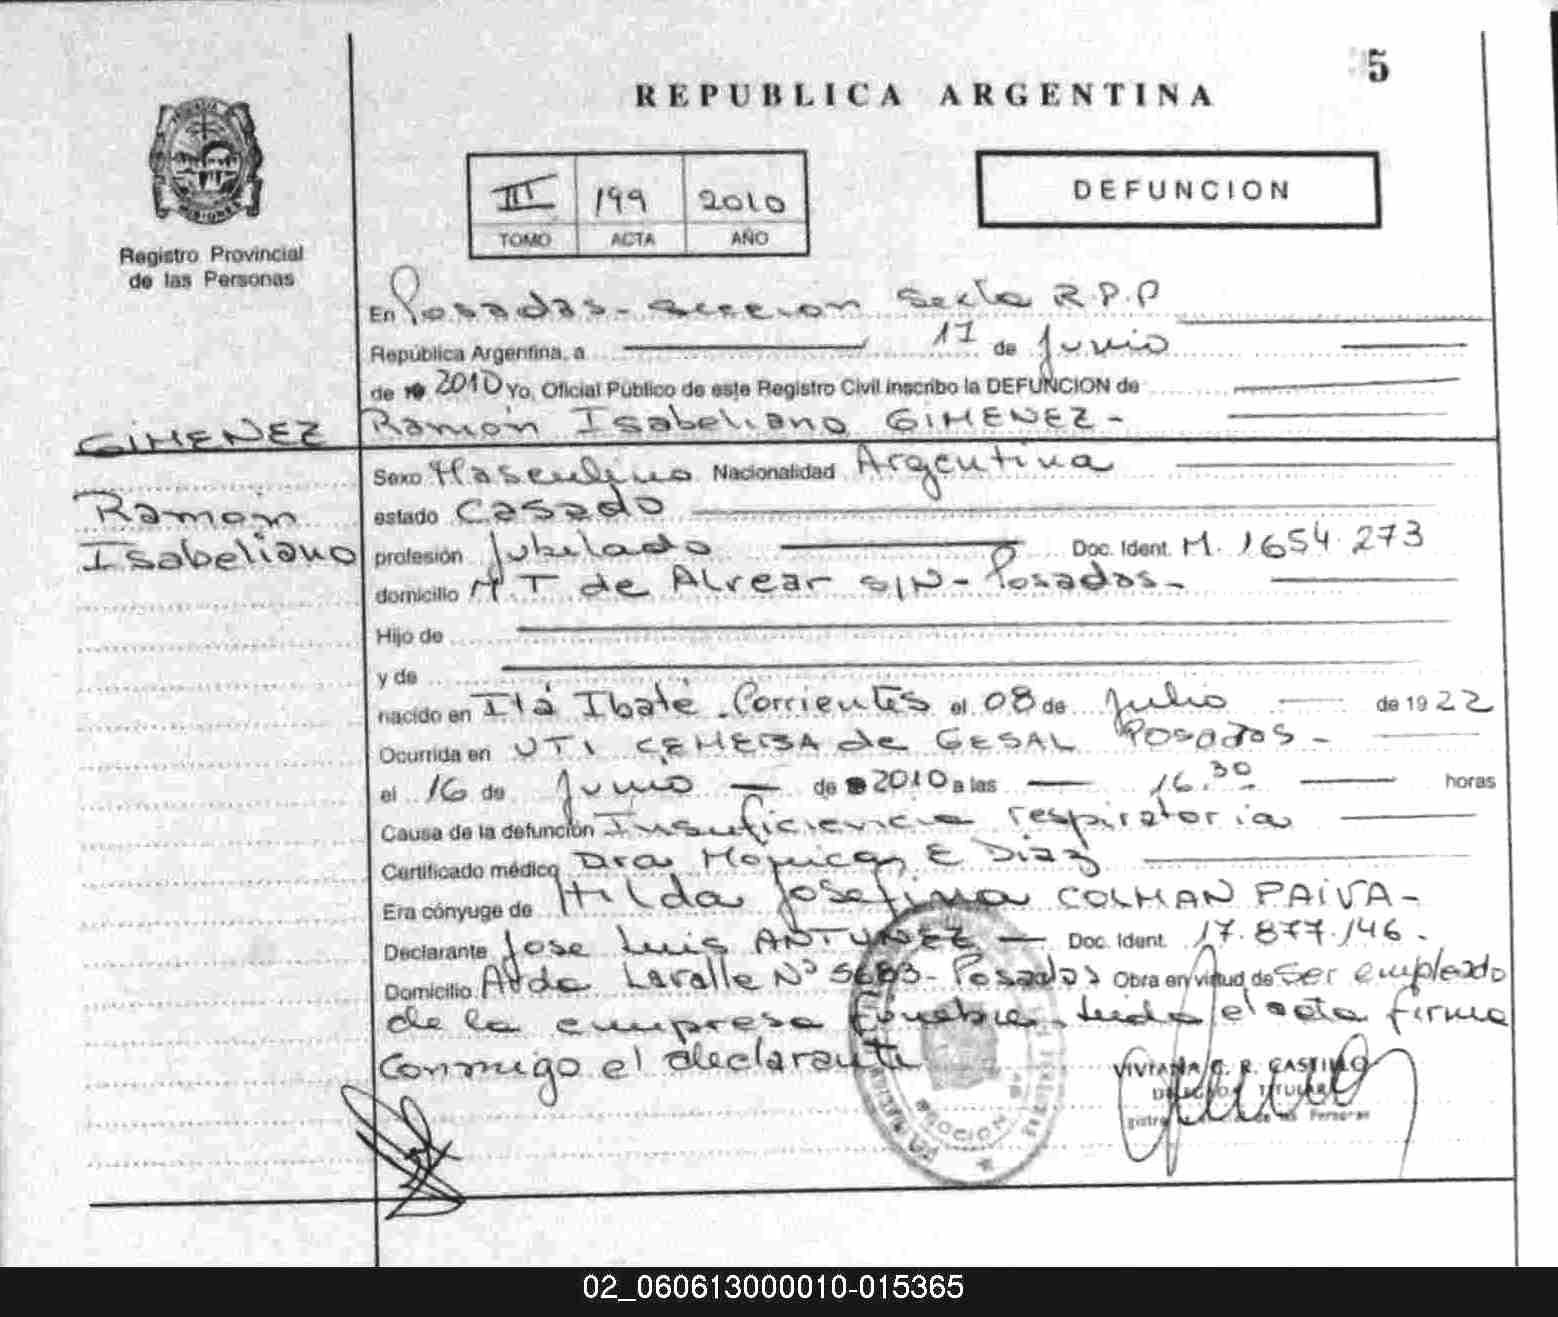 5
REPUBLICA ARGENTINA
III 199 2010
TOMO ACTA AÑO
DEFUNCION
Registro Provincial
de las Personas
En Posadas - seccion Sexta R.P.P
República Argentina, a 17 de Junio
de 2010 Yo, Oficial Público de este Registro Civil inscribo la DEFUNCION de
GIMENEZ
Ramón Isabeliano GIMENEZ -
Ramon
Isabeliano
Sexo Masculino Nacionalidad Argentina
estado Casado
profesión Jubilado Doc. Ident. M. 1654.273
domicilio M.T de Alvear S/N - Posadas -
Hijo de
y de
nacido en Itá Ibaté - Corrientes el 08 de Julio de 1922
Ocurrida en UTI CEMEBA de GESAL Posadas -
el 16 de Junio de 2010 a las 16.30 horas
Causa de la defunción Insuficiencia respiratoria
Certificado médico Dra Monica E Diaz
Era cónyuge de Hilda Josefina COLMAN PAIVA -
Declarante Jose Luis ANTUNEZ - Doc. Ident. 17.877.146.
Domicilio Avda Lavalle Nº 5683 - Posadas Obra en virtud de Ser empleado
de la empresa funebre, Leida el acta firma
conmigo el declarante
VIVIANA C. R. CASTILLO
TITULAR
de las Personas
SECCION
02_060613000010-015365